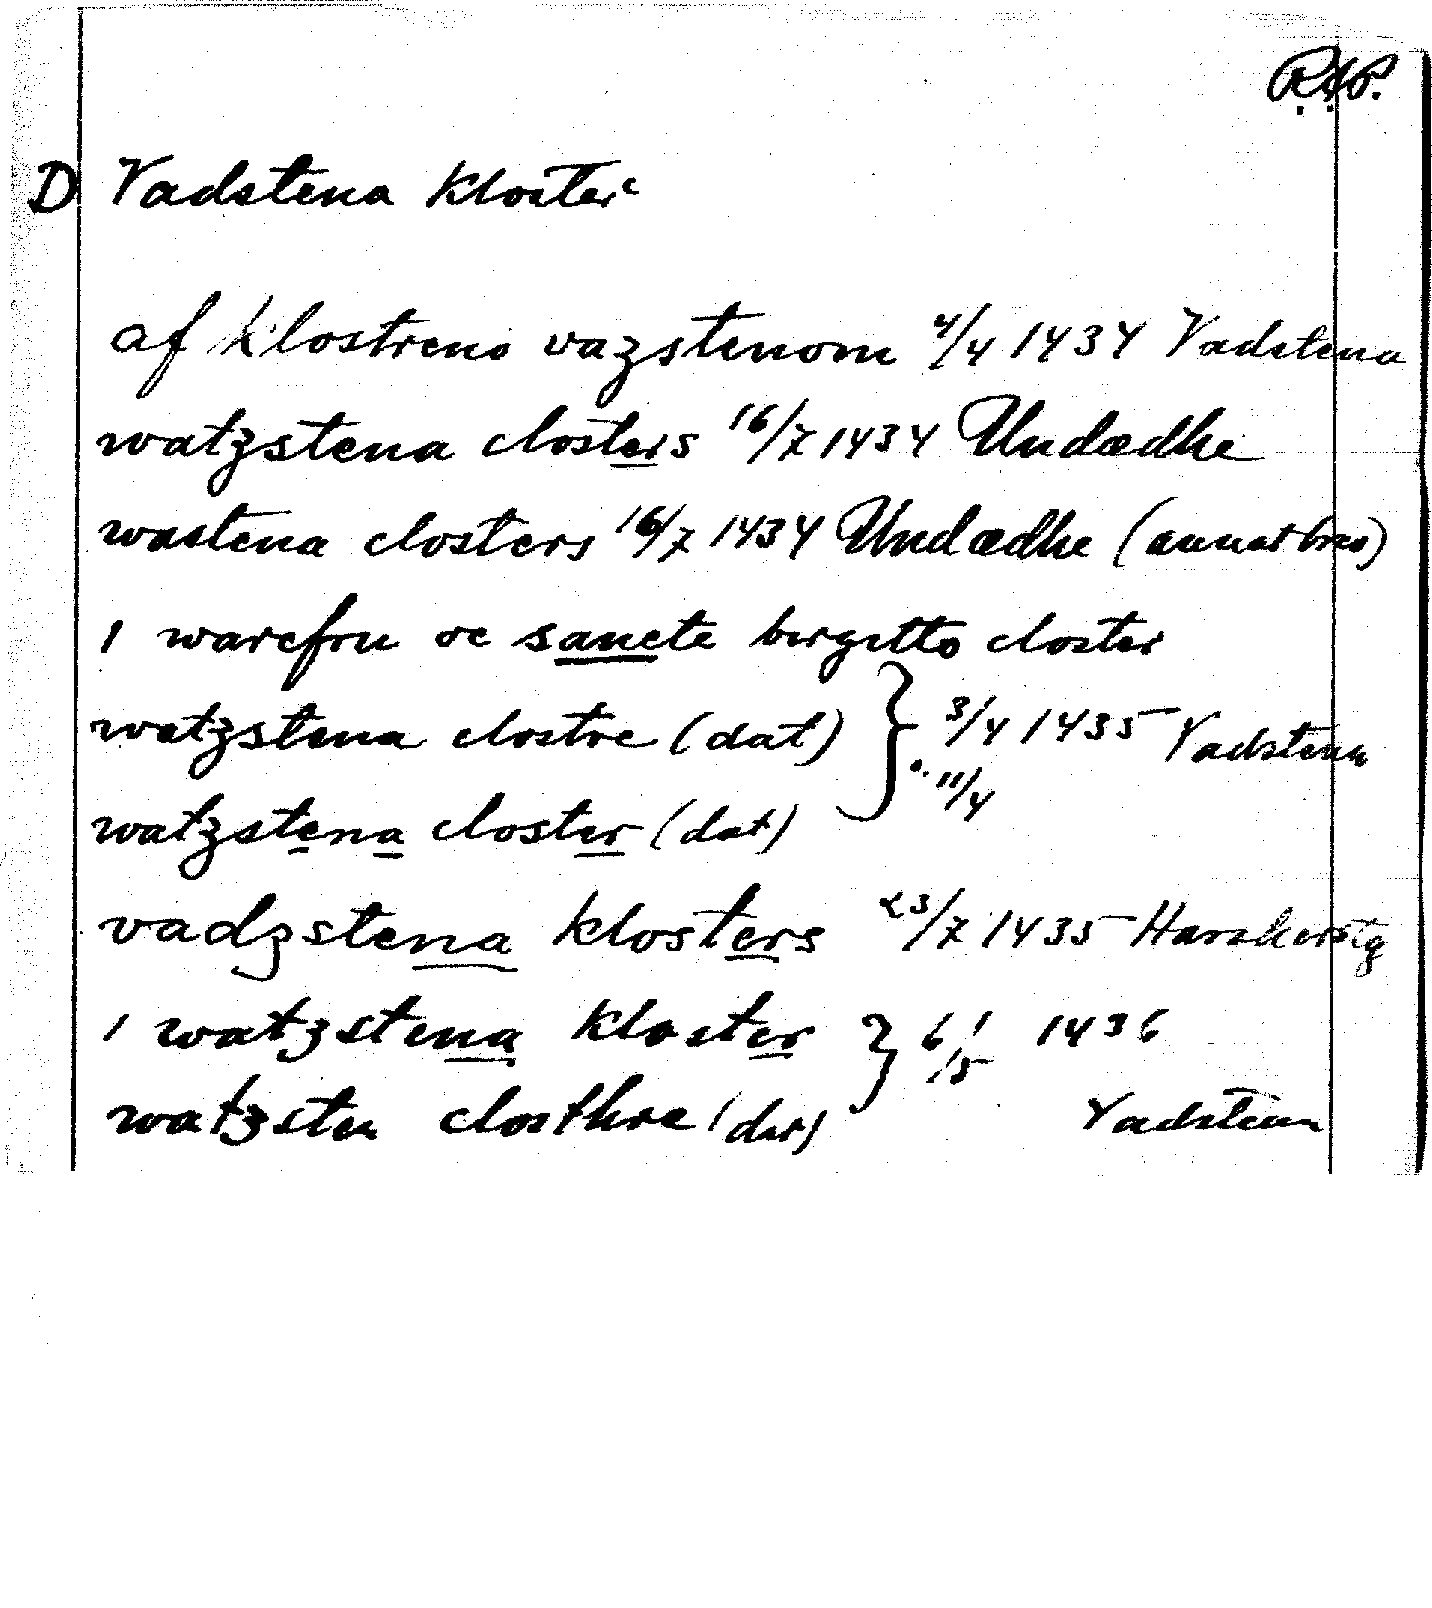 RAP.
D Vadstena kloster
af klostreno vazstenom 4/4 1434 Vadstena
watzstena closters 16/7 1434 Undædhe
wastena closters 16/7 1434 Undædhe (annat brev)
i warefru oc sancte birgitto closter
watzstena clostre (dat) } 3/4 1435 Vadstena
o. 11/4
watzstena closter (dat)
vadzstena klosters 23/7 1435
i watzstena kloster } 6/5 1436
watzsten closthre (dat) Vadstena